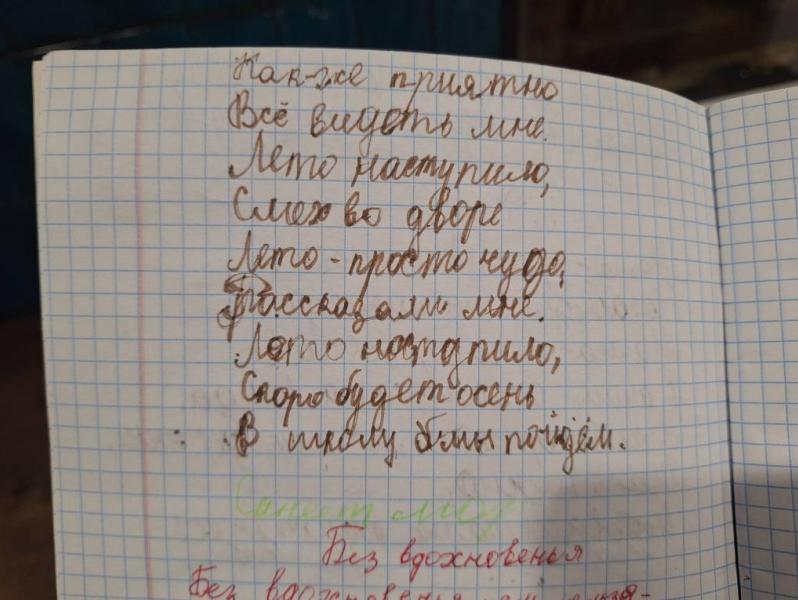 Как-же приятно
Всё видеть мне.
Лето наступило,
Смех во дворе
Лето - просто чудо,
Рассказали мне.
Лето наступило,
Скоро будет осень
В школу мы пойдём.
Без вдохновенья
Без вдохновенья